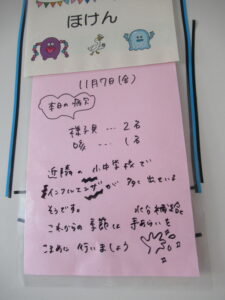 ほけん
11月7日(金)
本日の病欠
様子見 … 2名
咳 … 1名
近隣の小中学校で
インフルエンザが多く出ている
そうです。
水分補給
これからの季節は手あらいを
こまめに行いましょう